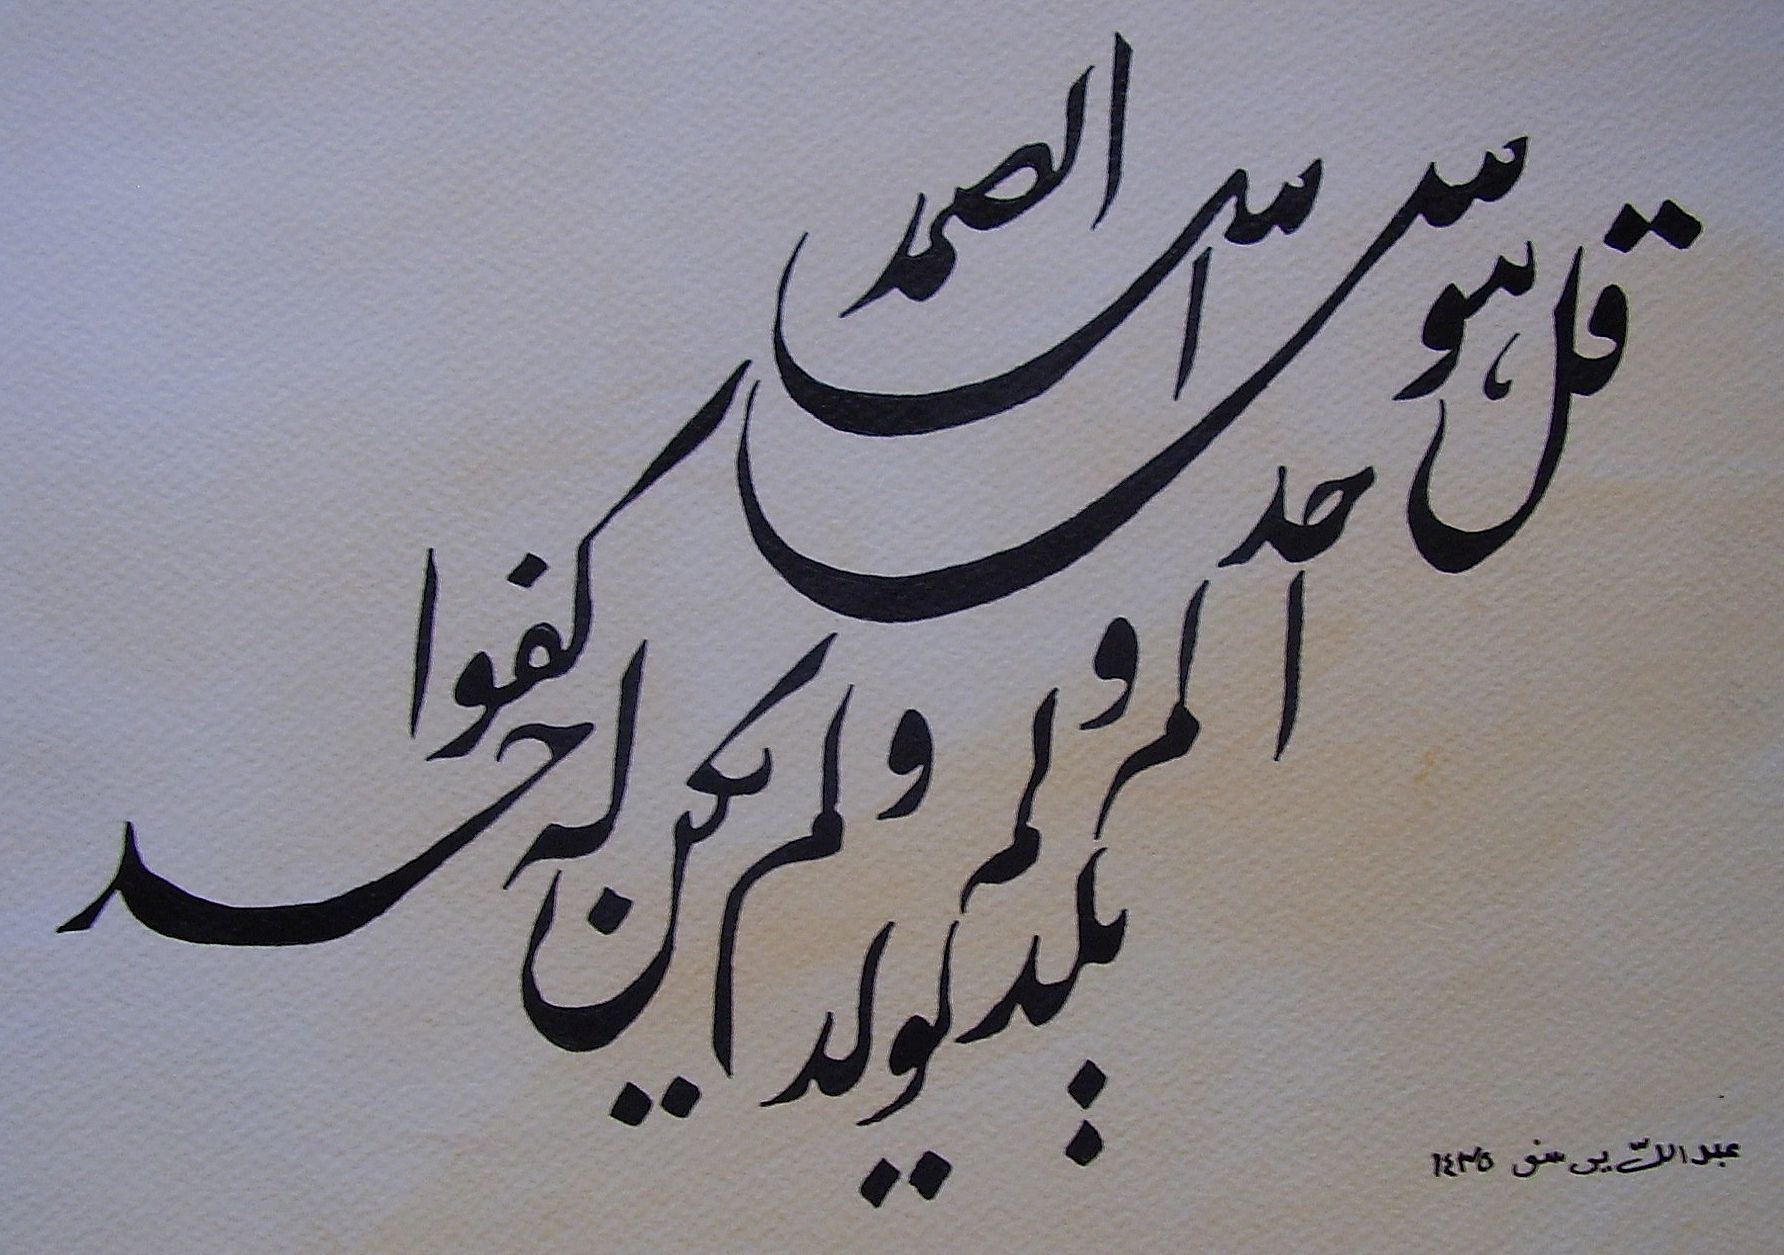 قل هو الله احد
الله الصمد
لم يلد ولم يولد
ولم يكن له كفوا احد
عبدالله ١٤٣٥